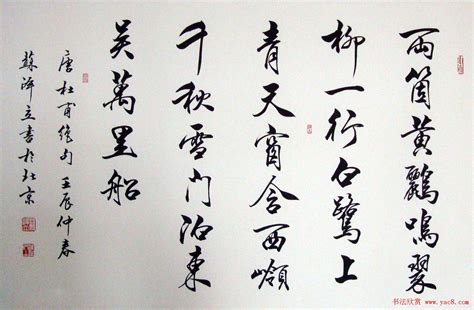 兩箇黃鸝鳴翠
柳一行白鷺上
青天窗含西嶺
千秋雪門泊東
吳萬里船
唐杜甫絕句 壬辰仲春
蘇澤立書於北京
书法欣赏
www.yac8.com